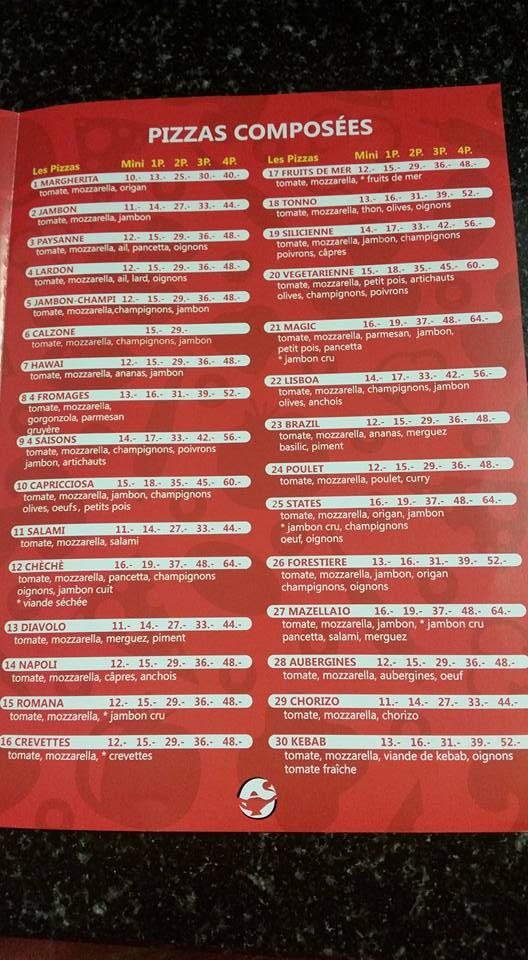 PIZZAS COMPOSÉES
Les Pizzas Mini 1P. 2P. 3P. 4P.
1 MARGHERITA 10.- 13.- 25.- 30.- 40.-
tomate, mozzarella, origan
2 JAMBON 11.- 14.- 27.- 33.- 44.-
tomate, mozzarella, jambon
3 PAYSANNE 12.- 15.- 29.- 36.- 48.-
tomate, mozzarella, ail, pancetta, oignons
4 LARDON 12.- 15.- 29.- 36.- 48.-
tomate, mozzarella, ail, lard, oignons
5 JAMBON-CHAMPI 12.- 15.- 29.- 36.- 48.-
tomate, mozzarella,champignons, jambon
6 CALZONE 15.- 29.-
tomate, mozzarella, champignons, jambon
7 HAWAI 12.- 15.- 29.- 36.- 48.-
tomate, mozzarella, ananas, jambon
8 4 FROMAGES 13.- 16.- 31.- 39.- 52.-
tomate, mozzarella,
gorgonzola, parmesan
gruyère
9 4 SAISONS 14.- 17.- 33.- 42.- 56.-
tomate, mozzarella, champignons, poivrons
jambon, artichauts
10 CAPRICCIOSA 15.- 18.- 35.- 45.- 60.-
tomate, mozzarella, jambon, champignons
olives, oeufs , petits pois
11 SALAMI 11.- 14.- 27.- 33.- 44.-
tomate, mozzarella, salami
12 CHÈCHÈ 16.- 19.- 37.- 48.- 64.-
tomate, mozzarella, pancetta, champignons
oignons, jambon cuit
* viande séchée
13 DIAVOLO 11.- 14.- 27.- 33.- 44.-
tomate, mozzarella, merguez, piment
14 NAPOLI 12.- 15.- 29.- 36.- 48.-
tomate, mozzarella, câpres, anchois
15 ROMANA 12.- 15.- 29.- 36.- 48.-
tomate, mozzarella, * jambon cru
16 CREVETTES 12.- 15.- 29.- 36.- 48.-
tomate, mozzarella, * crevettes
Les Pizzas Mini 1P. 2P. 3P. 4P.
17 FRUITS DE MER 12.- 15.- 29.- 36.- 48.-
tomate, mozzarella, * fruits de mer
18 TONNO 13.- 16.- 31.- 39.- 52.-
tomate, mozzarella, thon, olives, oignons
19 SILICIENNE 14.- 17.- 33.- 42.- 56.-
tomate, mozzarella, jambon, champignons
poivrons, câpres
20 VEGETARIENNE 15.- 18.- 35.- 45.- 60.-
tomate, mozzarella, petit pois, artichauts
olives, champignons, poivrons
21 MAGIC 16.- 19.- 37.- 48.- 64.-
tomate, mozzarella, parmesan, jambon,
petit pois, pancetta
* jambon cru
22 LISBOA 14.- 17.- 33.- 42.- 56.-
tomate, mozzarella, champignons, jambon
olives, anchois
23 BRAZIL 12.- 15.- 29.- 36.- 48.-
tomate, mozzarella, ananas, merguez
basilic, piment
24 POULET 12.- 15.- 29.- 36.- 48.-
tomate, mozzarella, poulet, curry
25 STATES 16.- 19.- 37.- 48.- 64.-
tomate, mozzarella, origan, jambon
* jambon cru, champignons
oeuf, oignons
26 FORESTIERE 13.- 16.- 31.- 39.- 52.-
tomate, mozzarella, jambon, origan
champignons, oignons
27 MAZELLAIO 16.- 19.- 37.- 48.- 64.-
tomate, mozzarella, jambon, * jambon cru
pancetta, salami, merguez
28 AUBERGINES 12.- 15.- 29.- 36.- 48.-
tomate, mozzarella, aubergines, oeuf
29 CHORIZO 11.- 14.- 27.- 33.- 44.-
tomate, mozzarella, chorizo
30 KEBAB 13.- 16.- 31.- 39.- 52.-
tomate, mozzarella, viande de kebab, oignons
tomate fraîche